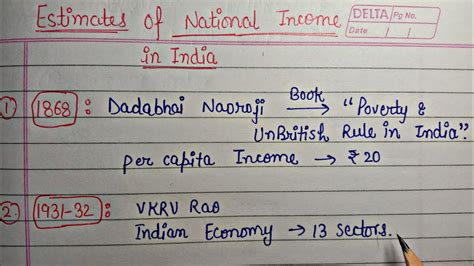 Estimates of National Income
in India
DELTA Pg No.
Date / /
1 1868 : Dadabhai Naoroji Book → "Poverty &
UnBritish Rule in India".
per capita Income → ₹ 20
2. 1931-32 : VKRV Rao
Indian Economy → 13 sectors.